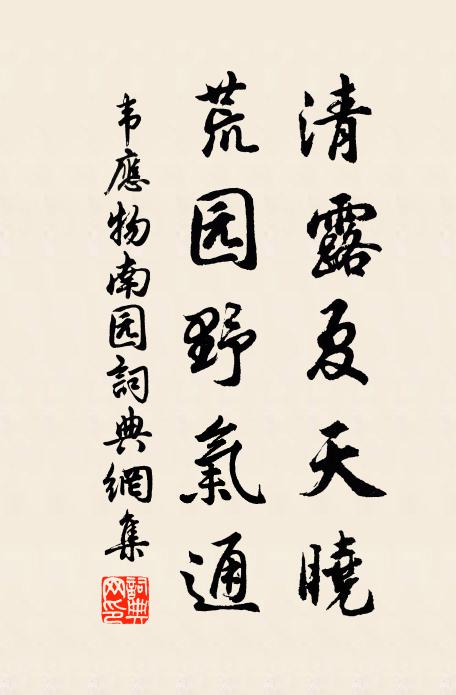 清露夏天曉
荒园野氣通
韦應物南园詞典網集
詞典网印